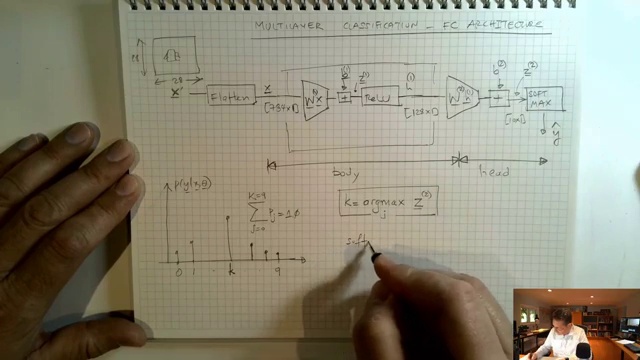 MULTILAYER CLASSIFICATION - FC ARCHITECTURE
28
28
x'
Flatten
x
[784x1]
W⁽¹⁾x
b⁽¹⁾
+
z⁽¹⁾
ReLU
h⁽¹⁾
[128x1]
W⁽²⁾h⁽¹⁾
b⁽²⁾
+
z⁽²⁾
SOFT
MAX
ŷ
body
head
p(y|x,θ)
K-1=9
∑ Pj = 1.0
j=0
0 1 k 9
K = argmax z⁽²⁾
j
soft